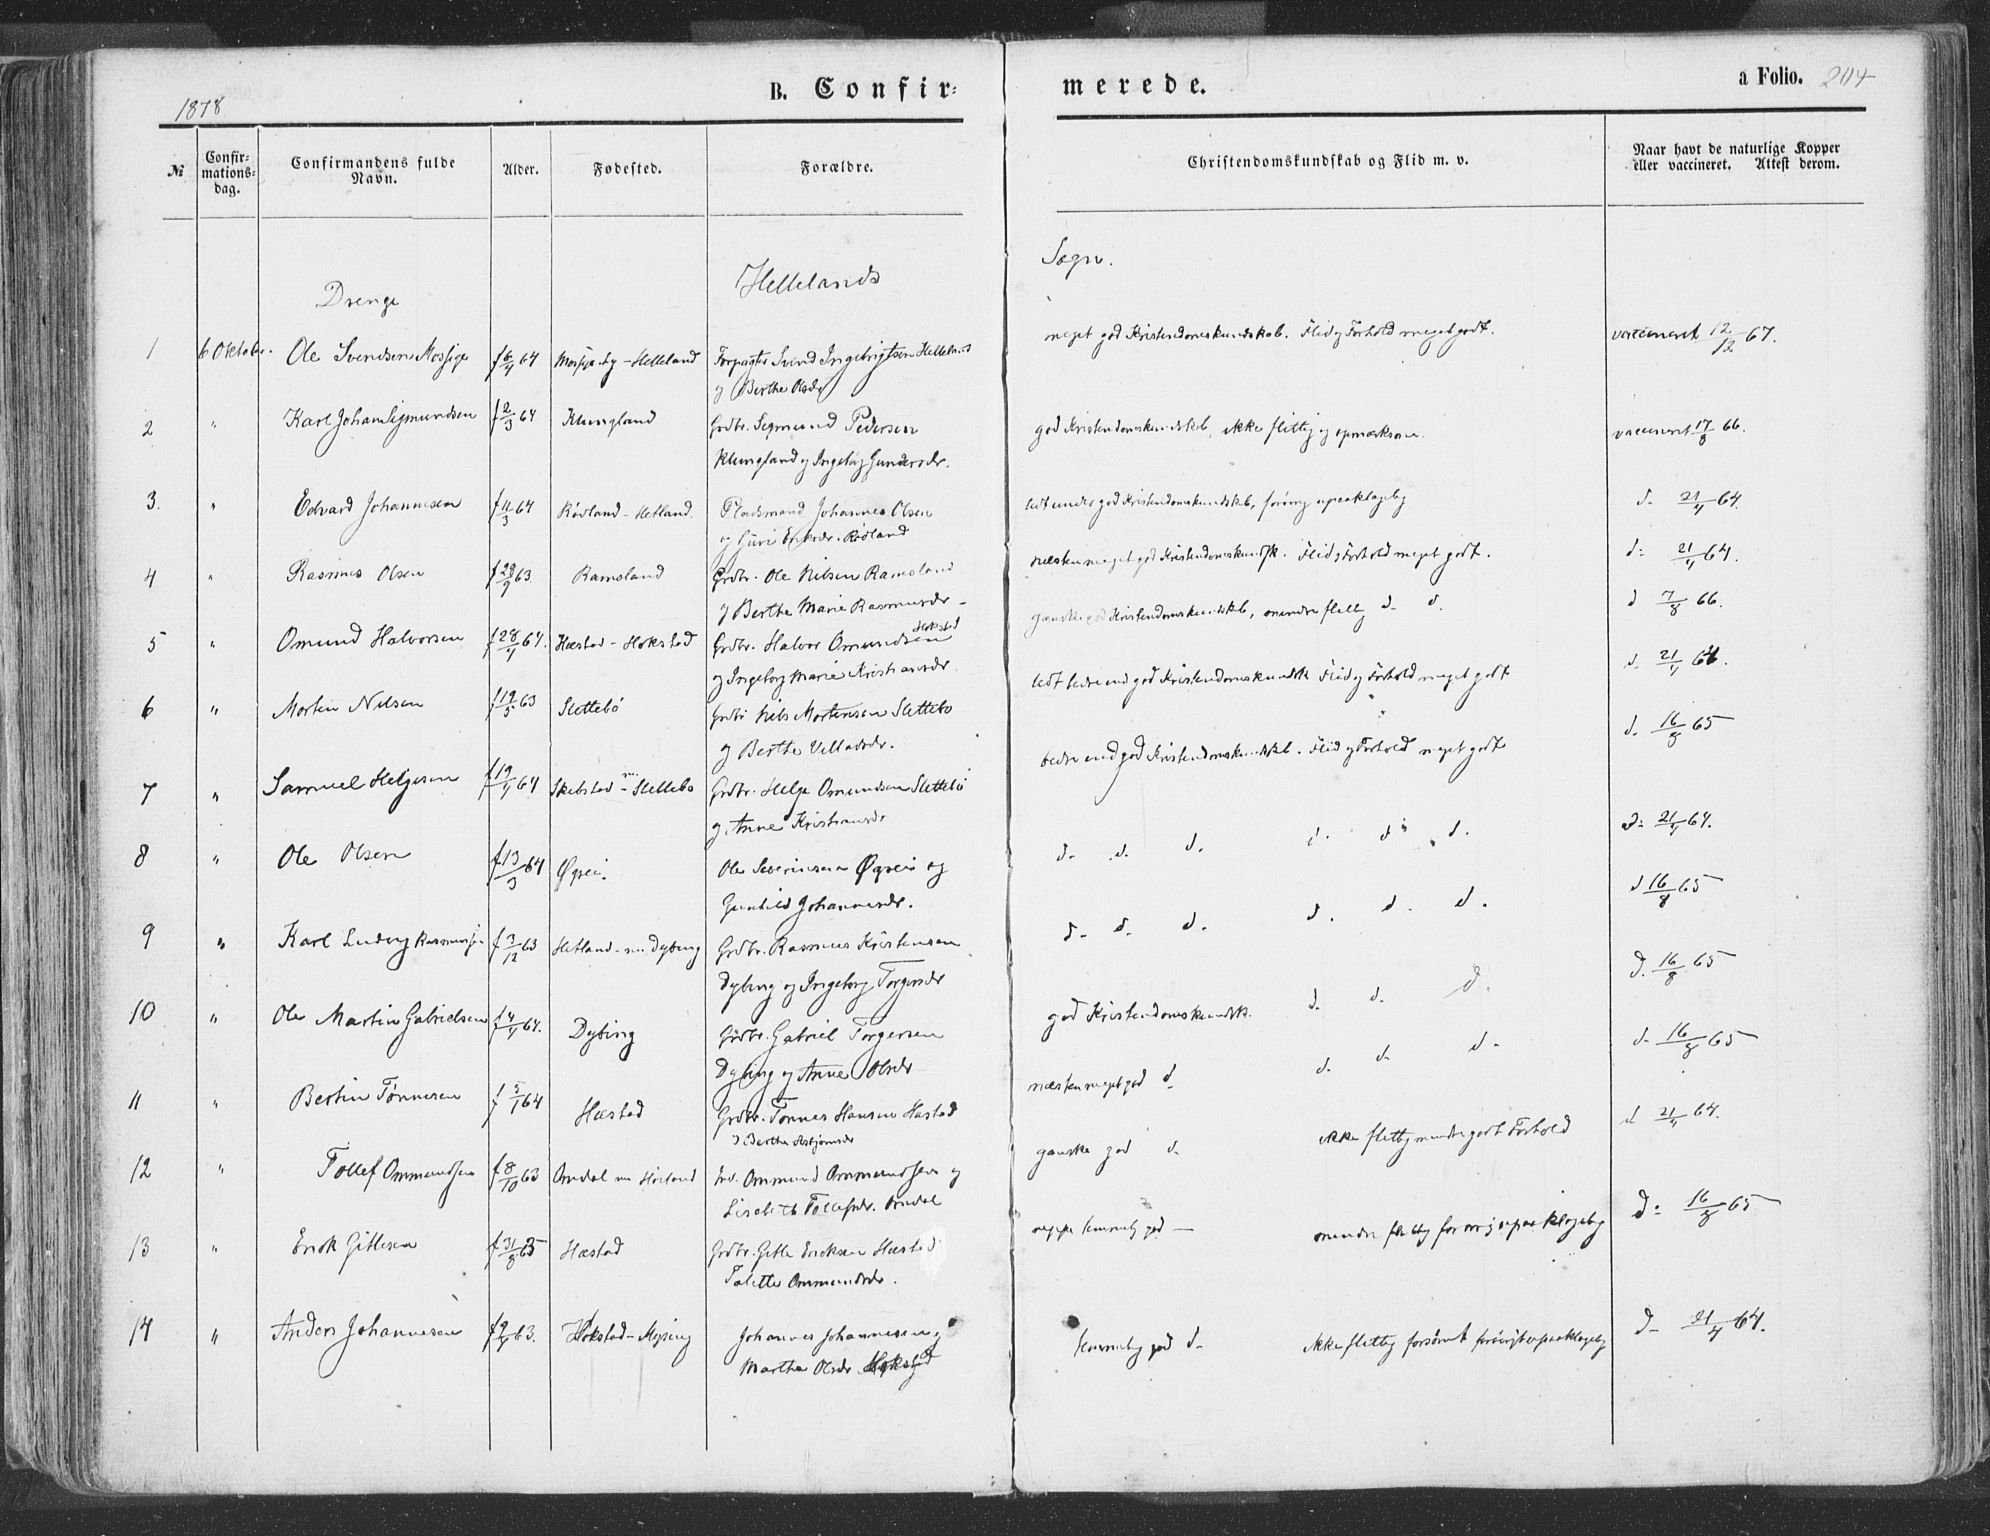 1878
B. Confir=
merede.
a Folio. 204
№
Confir=
mations=
dag.
Confirmandens fulde
Navn.
Alder.
Fødested.
Forældre.
Christendomskundskab og Flid m. v.
Naar havt de naturlige Kopper
eller vaccineret. Attest derom.
Drenge
Hellelands
Sogn.
1 6 Oktober. Ole Svendsen Mossige f 6/4 64 - Helleland Forpagter Svend Ingebrigtsen Helleland meget god Kristendomskundskab. Flid og Forhold meget godt. vaccineret 12/12 67.
og Berthe Olsdr
2 " Karl Johan Sigmundsen f 2/3 64 Klungland Grdbr. Segmund Pedersen god Kristendomskundskab, ikke flittig og opmærksom. vaccineret 17/8 66.
Klungland og Ingeborg Gundersdr.
3. " Edvard Johannesen f 11/3 64 Rødland - Hetland. Pladsmand Johannes Olsen lidt under god Kristendomskundskab, forøvrig upaaklagelig d- 21/4 64.
og Guri Eriksdr. Rødland
4 " Rasmus Olsen f 29/9 63 Ramsland Grdbr. Ole Nilsen Ramsland næsten meget god Kristendomskundsk. Flid og Forhold meget godt. d: 21/4 64.
og Berthe Marie Rasmusdr -
5 " Omund Halvorsen f 28/4 64. Hæstad - Hokstad Grdbr. Halvor Omundsen Hokstad ganske god Kristendomskundskab, mindre flittig d- d. d 7/8 66.
og Ingeborg Marie Kristiansdr.
6 " Martin Nilsen f 19/5 63 Slettebø Grdbr Nils Mortensen Slettebø lidt bedre end god Kristendomskundsk Flid og Forhold meget godt d. 21/4 64.
og Berthe Velladsdr.
7 " Samuel Helgesen f 19/4 64 Skibstad - Slettebø Grdbr. Helge Omundsen Slettebø bedre end god Kristendomskundskab. Flid og Forhold meget godt d. 16/8 65
og Anne Kristiansdr
8 " Ole Olsen f 13/3 64 Øgrei. Ole Severinsen Øgrei og d- d. d. d. d. d. d: 21/4 64.
Gunhild Johannesdr.
9 " Karl Ludvig Rasmussen f 3/12 63 Hetland - Dybing Grdbr. Rasmus Kristensen d- d- d. d. d. d. d 16/8 65
Dybing og Ingeborg Torgersdr
10 " Ole Martin Gabrielsen f 4/4 64. Dybing Grdbr. Gabriel Torgersen god Kristendomskundsk. d. d. d. d. 16/8 65
Dybing og Anne Olsdr
11 " Bertin Tønnesen f 5/1 64 Hæstad Grdbr. Tønnes Hansen Hæstad næsten meget god d d. d- d- d- 16/8 65
og Berthe Asbjørnsdr
12 " Tollef Ommundsen f 8/10 63 Omdal Ommund Ommundsen og ganske god d. ikke flittig mindre godt Forhold d 21/4 64.
Lisebeth Tollefsdr. Omdal
13 " Erik Gitlesen f 31/8 63 Hæstad Grdbr. Gitle Eriksen Hæstad neppe temmelig god — mindre flittig forøvrig upaaklagelig d: 16/8 65
Talette Ommundsdr.
14 " Anders Johannesen 63. Hokstad - Johannes Johannesen og temmelig god d- ikke flittig forsømt forøvrigt upaaklagelig d- 21/4 64.
Martha Olsdr. Hokstad